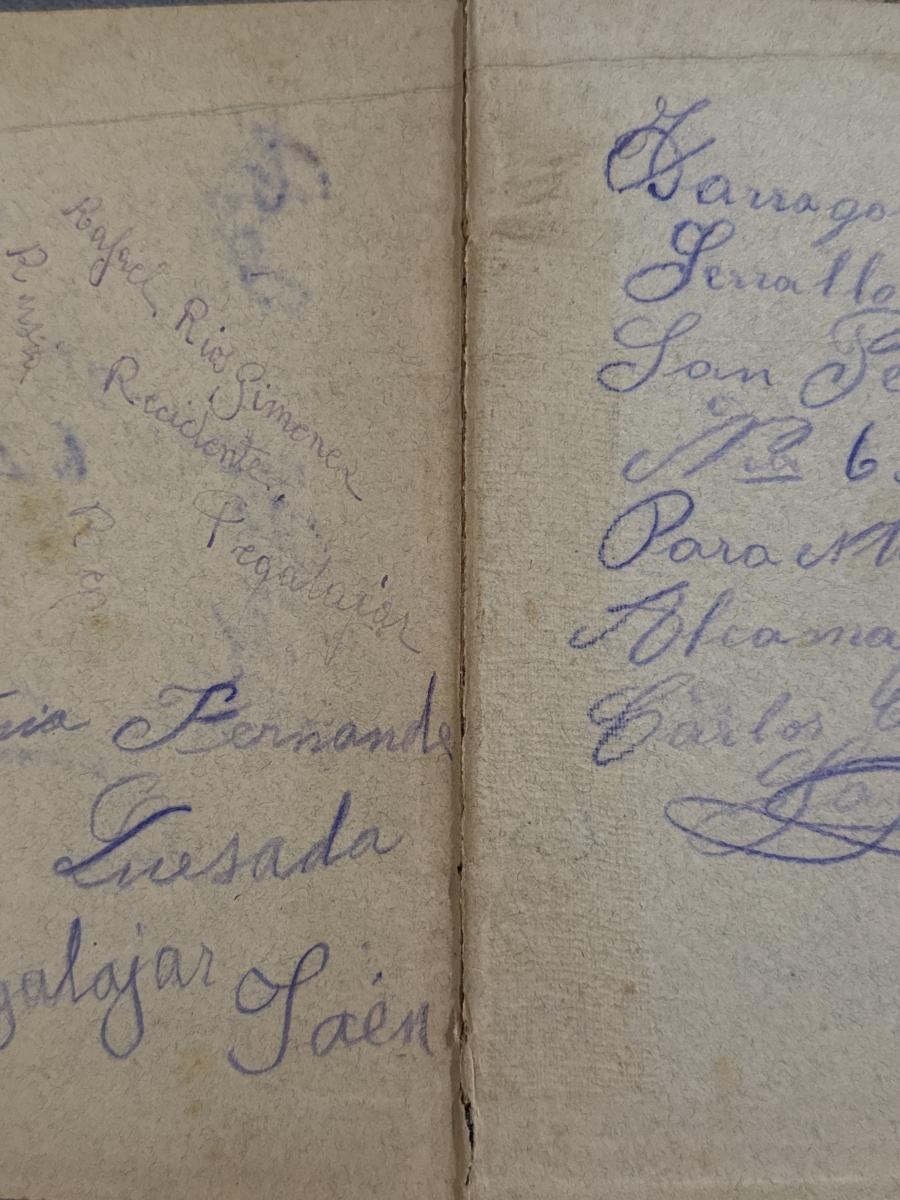 Rafael Rios Gimenez
Recidente
Pegalajar
R
Fernande
Quesada
galajar Jaén
Tarrago
Serrallo
San Pe
Nº 6
Para
Alcama
Carlos